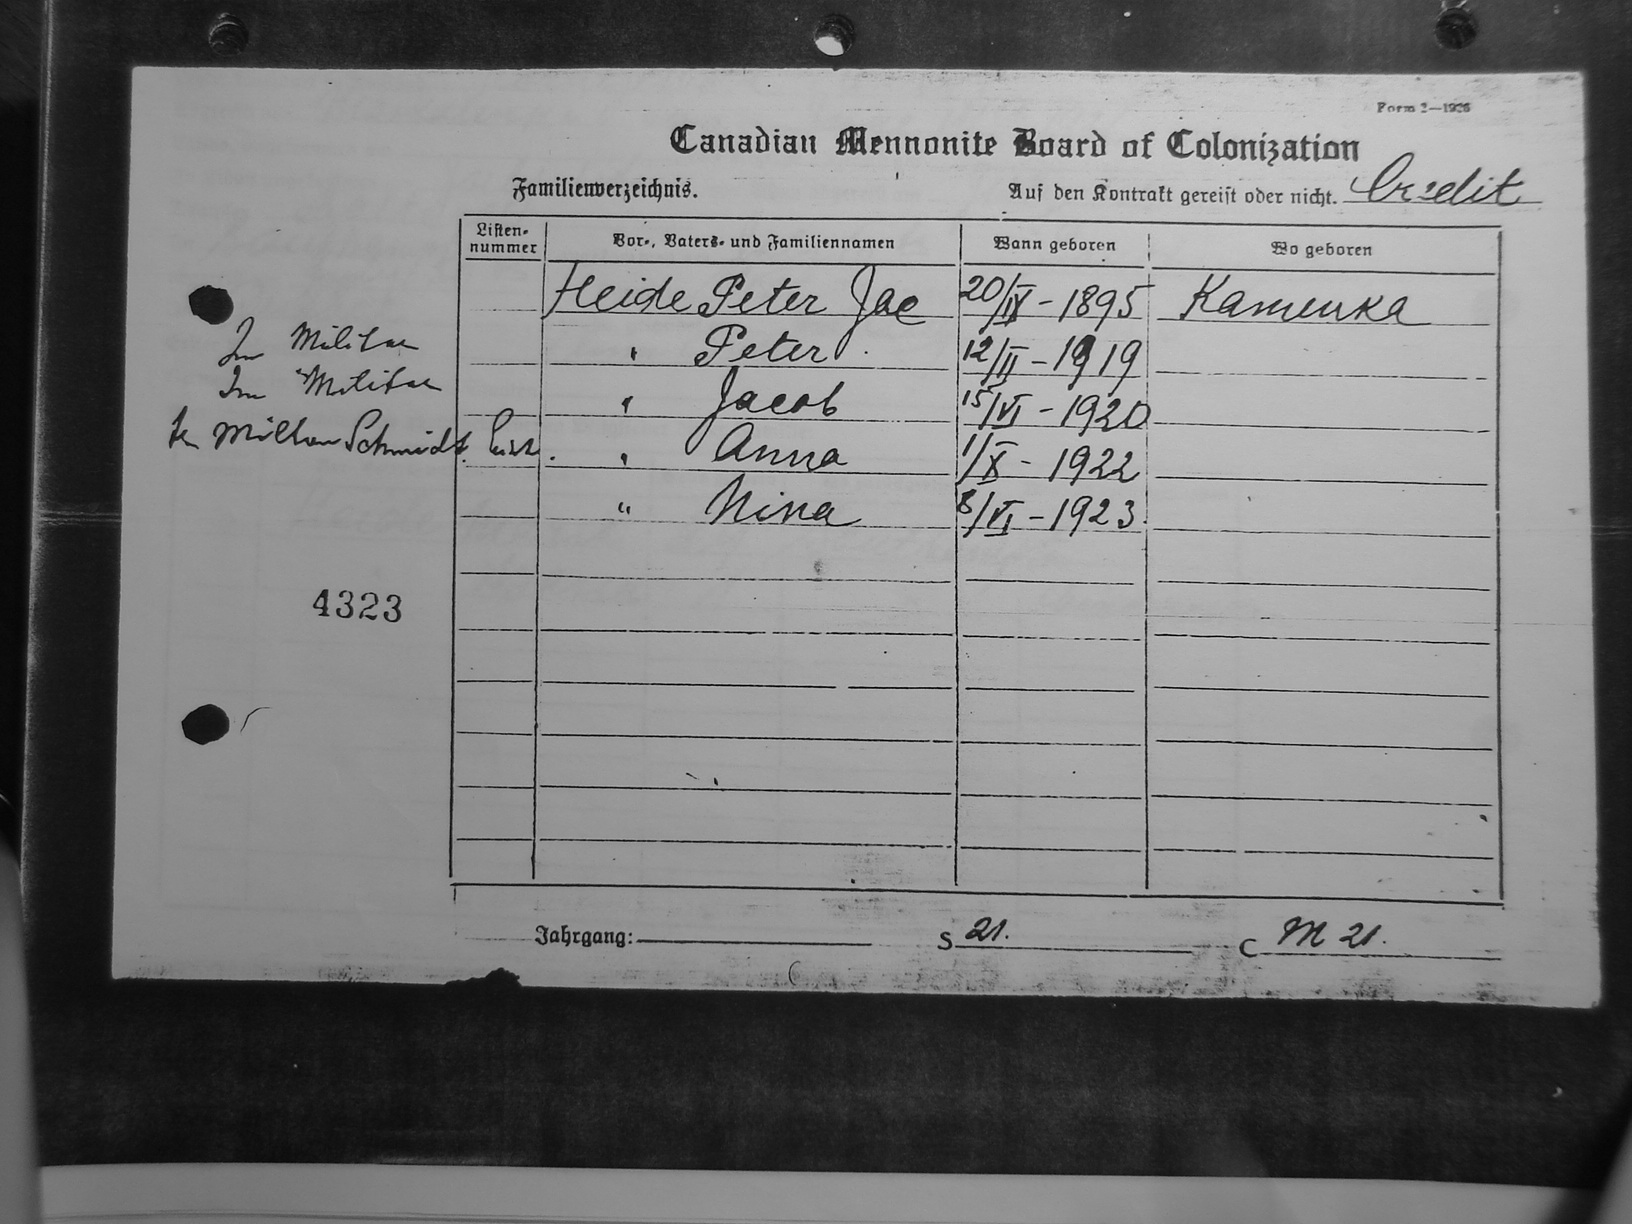 Form 2—1926
Canadian Mennonite Board of Colonization
Familienverzeichnis. Auf den Kontrakt gereist oder nicht. Credit
Listen-nummer Vor-, Vaters- und Familiennamen Wann geboren Wo geboren
Heide Peter Jac 20/IX - 1895 Kamenka
Im Militar " Peter 12/II - 1919
Im Militar " Jacob 15/VI - 1920
Schmidt " Anna 1/X - 1922
" Nina 8/VI - 1923
4323
Jahrgang: S 21. C M 21.